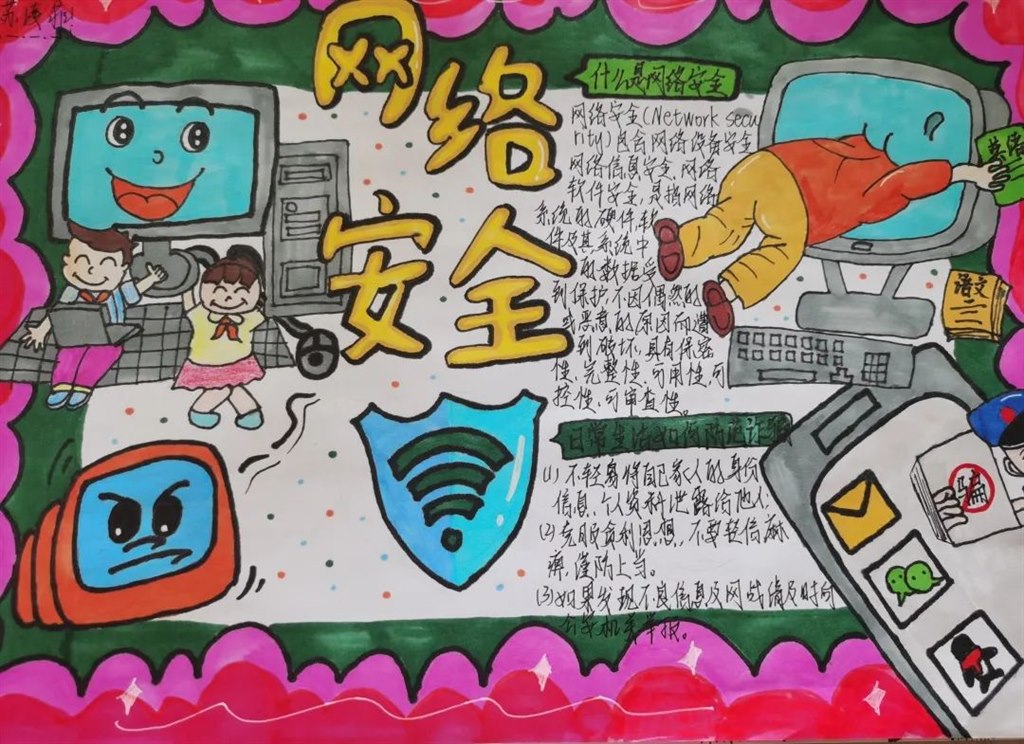 网络
安全
什么是网络安全
网络安全(Network secu
rity)包含网络设备安全
网络信息安全、网络
软件安全,是指网络
系统的硬件、软
件及其系统中
的数据受
到保护,不因偶然的
或恶意的原因而遭
到破坏,具有保密
性、完整性、可用性、可
控性、可审查性。
日常生活如何防范诈骗
(1)不轻易将自己家人的身份
信息、个人资料泄露给他人
(2)克服贪利思想,不要轻信麻
痹,谨防上当。
(3)如果发现不良信息及网战请及时向
公安机关举报。
英语
语文
骗